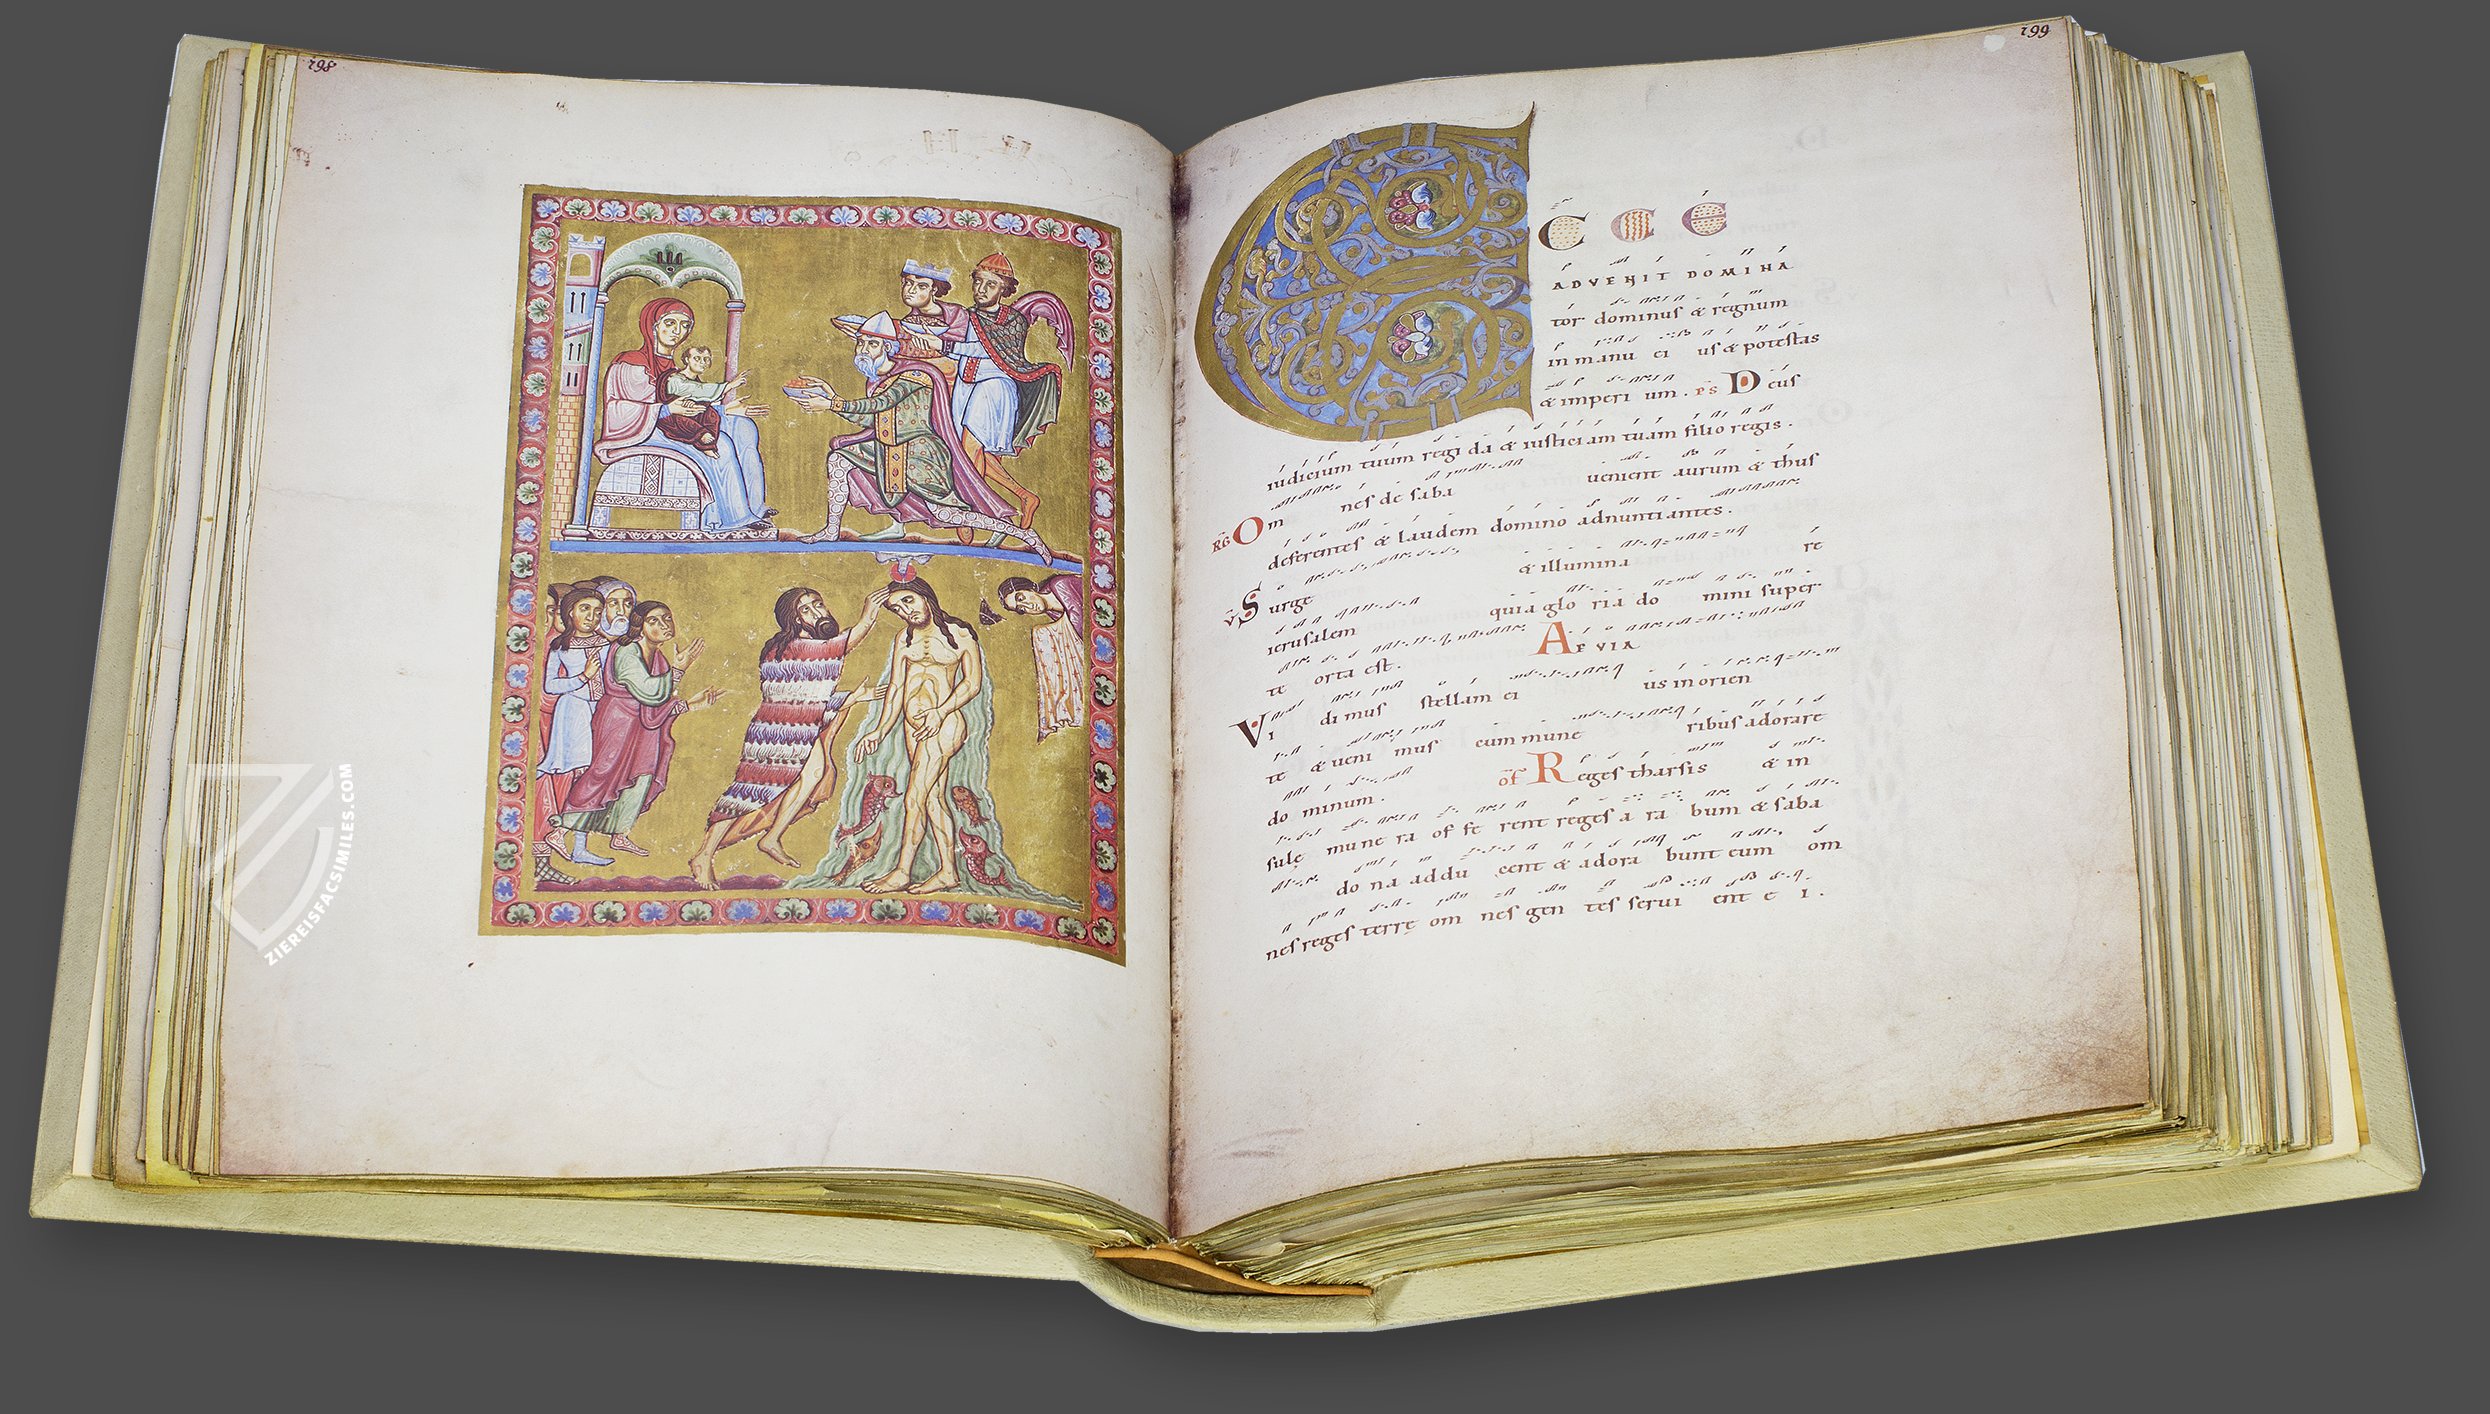 198
ZIEREISFACSIMILES.COM
199
E CCE
ADVENIT DOMINA
tor dominus & regnum
in manu ei us & potestas
& imperi um. PS Deus
iudicium tuum regi da & iusticiam tuam filio regis.
RG Om nes de saba uenient aurum & thus
deferentes & laudem domino adnuntiantes.
V Surge & illumina re
ierusalem quia glo ria do mini super
te orta est. AEVIA
Vi di mus stellam ei us in orien
te & ueni mus cum mune ribus adorare
do minum. OF Reges tharsis & in
sulę mune ra of fe rent reges a ra bum & saba
do na addu cent & adora bunt eum om
nes reges terrę om nes gen tes serui ent e i.